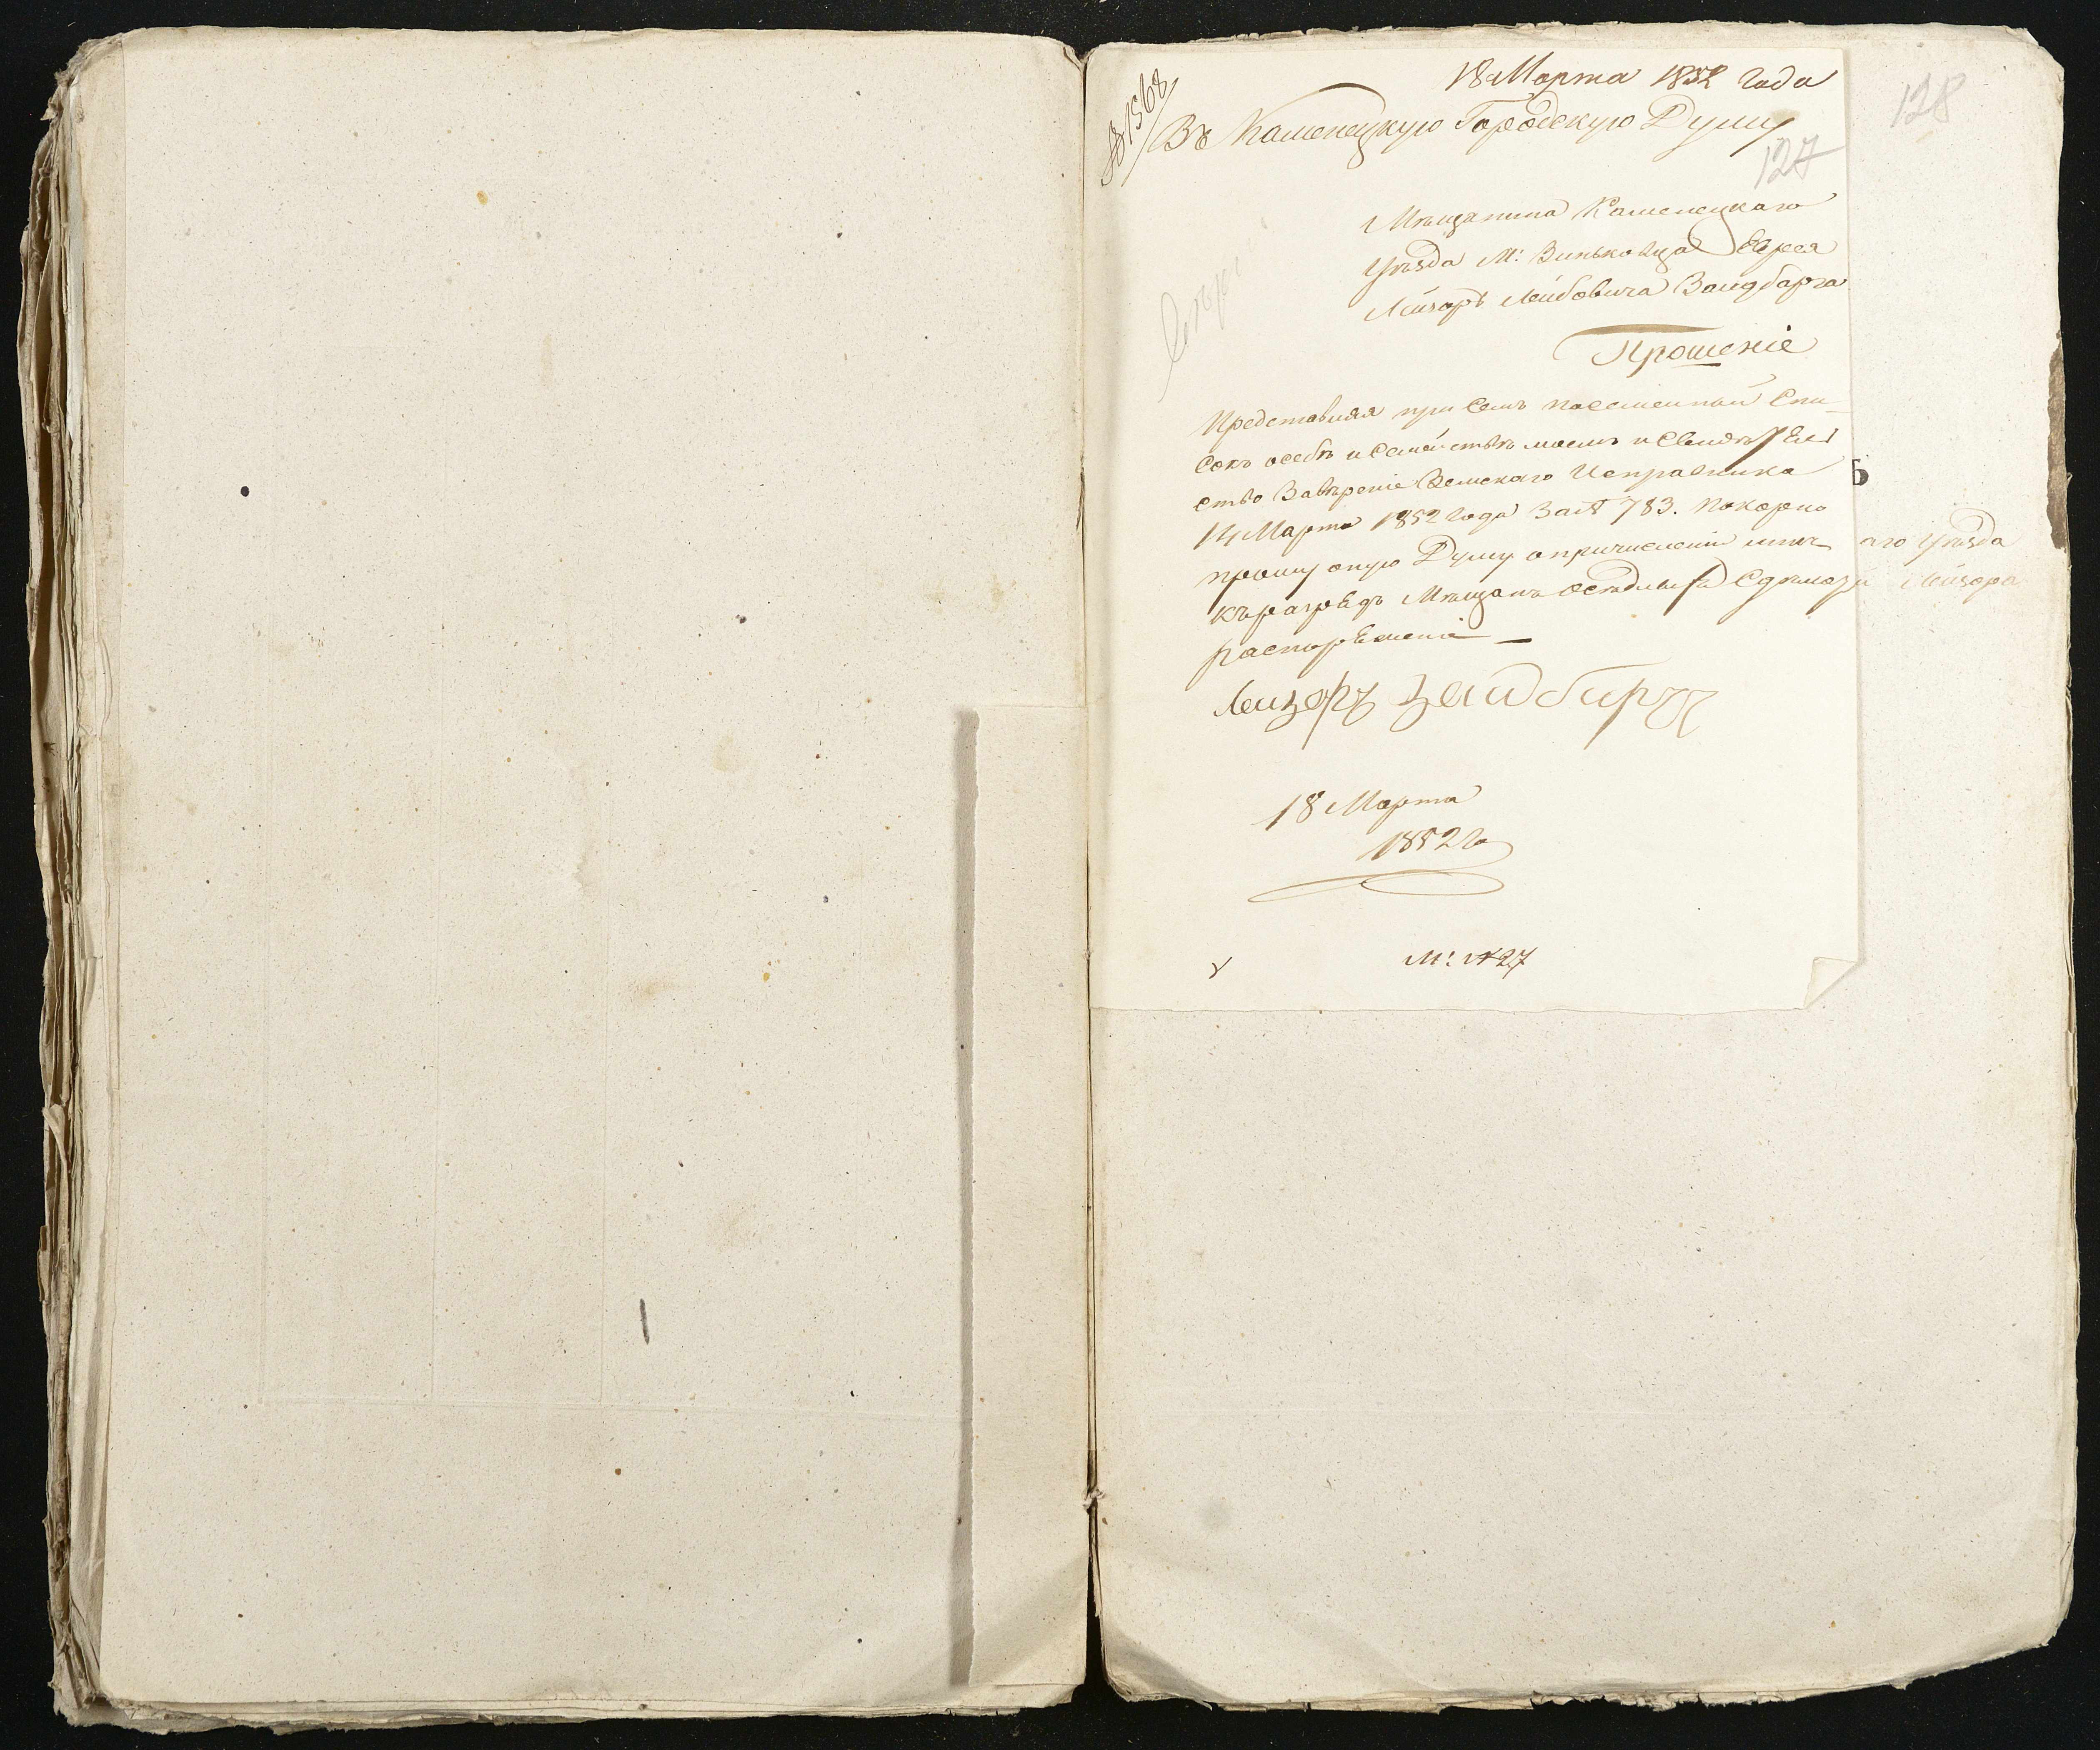 18 Марта 1852 года
№ 1568
Въ Каменецкую Городскую Думу
128
127
Мѣщанина Каменецкаго
Уѣзда М: Виньковца Еврея
Лейзоръ Лейбовича Заидбарга
Прошеніе
Представляя при Семъ посемейный Спи-
Сокъ особѣ и Семействѣ моемъ и
ство Завѣреніе Земскаго Исправника
14 Марта 1852 года За № 783. покорно
прошу оную Думу о причисленіи мѣня
къ разрѣдъ Мѣщанъ осѣдлыхъ
распоряженіе
аго Уѣзда
Лейзора
Лейзоръ Зейдбиргъ
18 Марта
1852 го
М: № 27